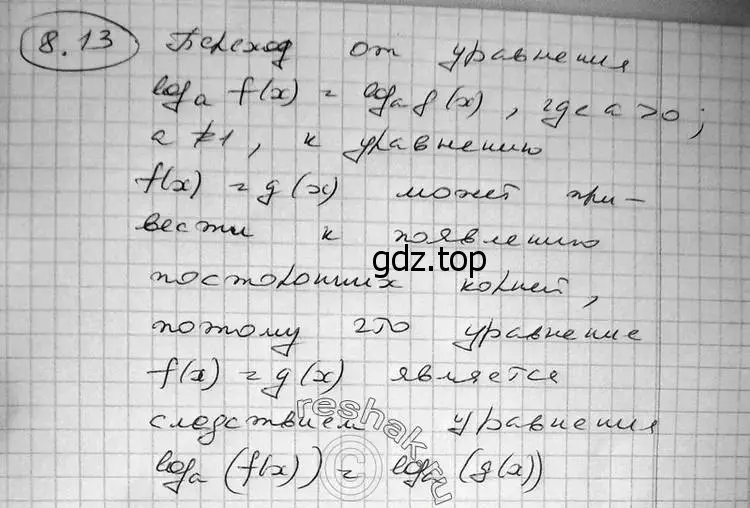 8.13 Переход от уравнения
logₐ f(x) = logₐ g(x), где a > 0;
a ≠ 1, к уравнению
f(x) = g(x) может при-
вести к появлению
gdz.top
посторонних корней,
потому что уравнение
f(x) = g(x) является
следствием уравнения
reshak.ru
©
logₐ (f(x)) = logₐ (g(x))